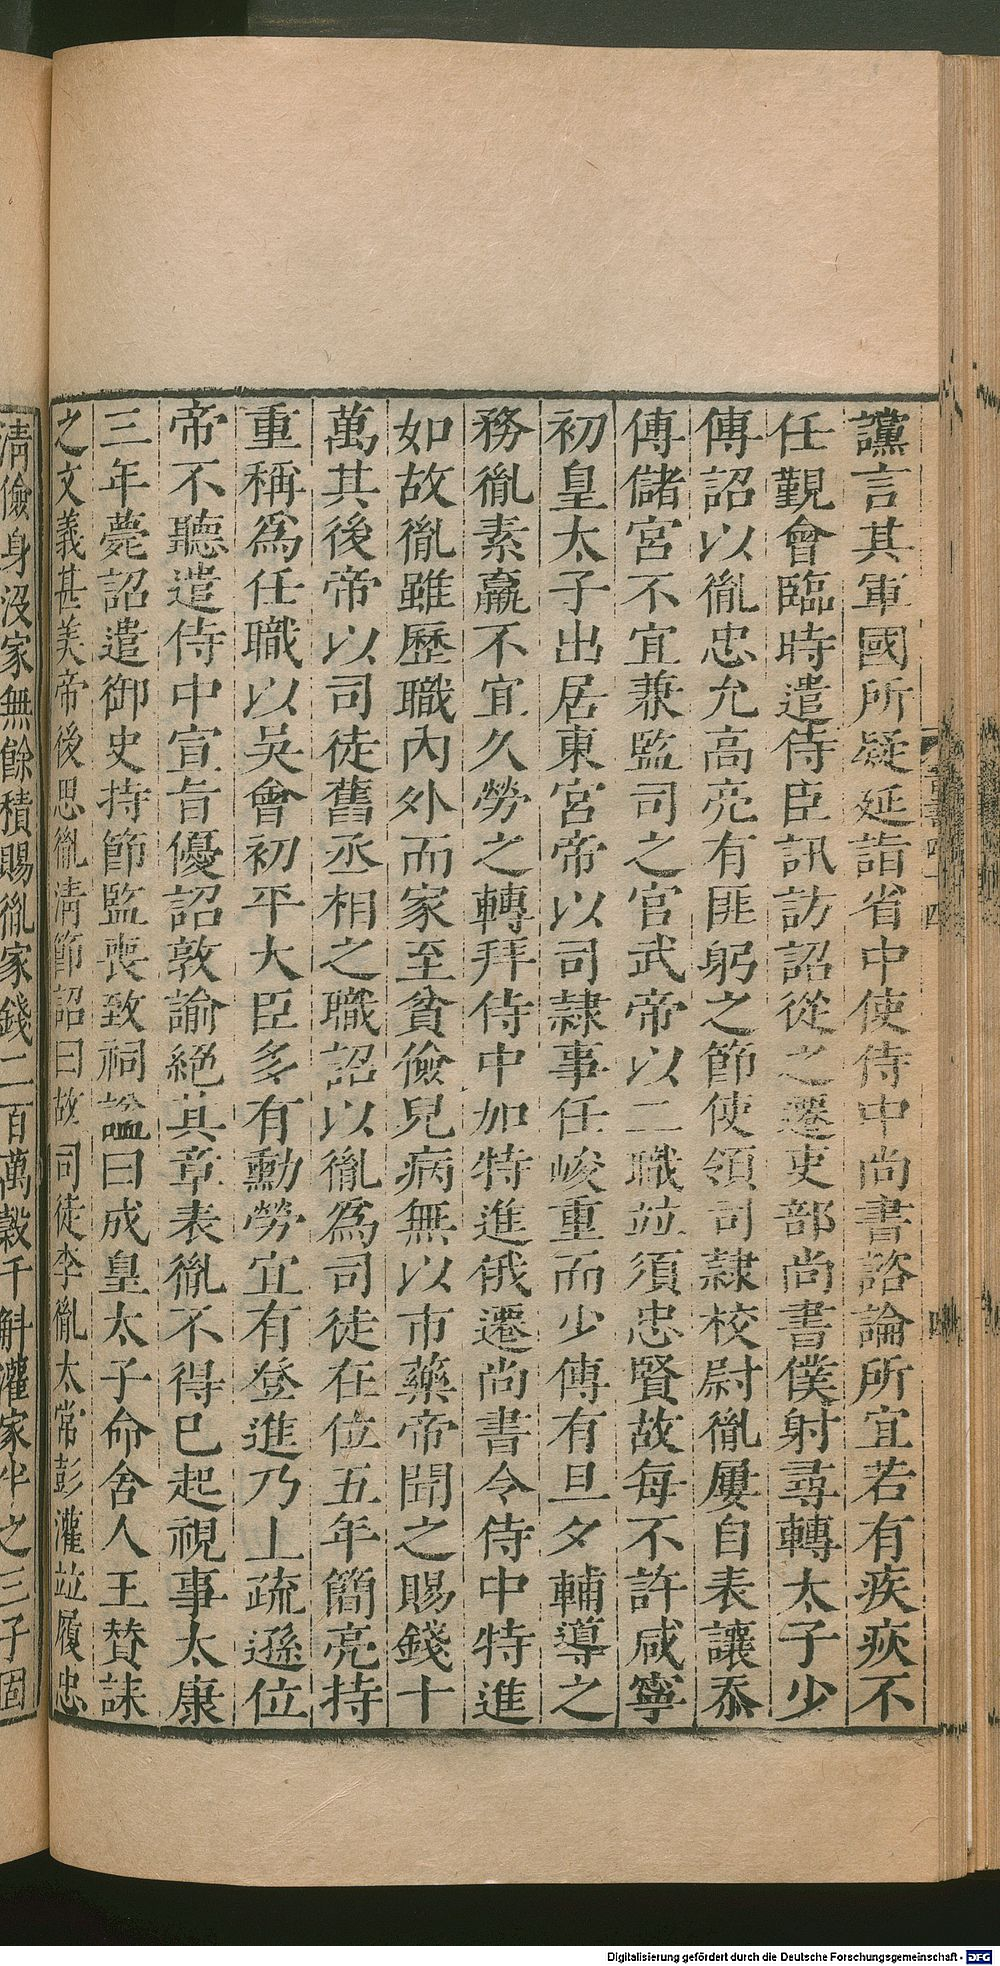 讜言其軍國所疑延詣省中使侍中尚書諮論所宜若有疾疢不
任覲會臨時遣侍臣訊訪詔從之遷吏部尚書僕射尋轉太子少
傅詔以胤忠允高亮有匪躬之節使領司隸校尉胤屢自表讓忝
傅儲宮不宜兼監司之官武帝以二職並須忠賢故每不許咸寧
初皇太子出居東宮帝以司隸事任峻重而少傅有旦夕輔導之
務胤素羸不宜久勞之轉拜侍中加特進俄遷尚書令侍中特進
如故胤雖歷職內外而家至貧儉兒病無以市藥帝聞之賜錢十
萬其後帝以司徒舊丞相之職詔以胤爲司徒在位五年簡亮持
重稱爲任職以吳會初平大臣多有勳勞宜有登進乃上疏遜位
帝不聽遣侍中宣旨優詔敦諭絕其章表胤不得已起視事太康
三年薨詔遣御史持節監喪致祠謚曰成皇太子命舍人王贊誄
之文義甚美帝後思胤清節詔曰故司徒李胤太常彭灌並履忠
清儉身沒家無餘積賜胤家錢二百萬穀千斛灌家半之三子固
晉書四十四
四
Digitalisierung gefördert durch die Deutsche Forschungsgemeinschaft - DFG